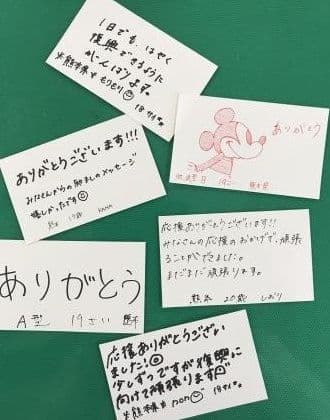 1日でも、はやく
復興できるように
がんばります。
熊本県 もりもり 18才
ありがとう
ありがとうございます!!!
みなさんからの励ましのメッセージ
嬉しかったです☺
17歳 kana
応援ありがとうございます!!
みなさんの応援のおかげで、頑張
ることができました。
まだまだ頑張ります。
熊本 20歳 しおり
ありがとう
A型 19さい
応援ありがとうござい
ました!☺
少しずつですが復興に
向けて頑張ります
熊本県 pon 19才